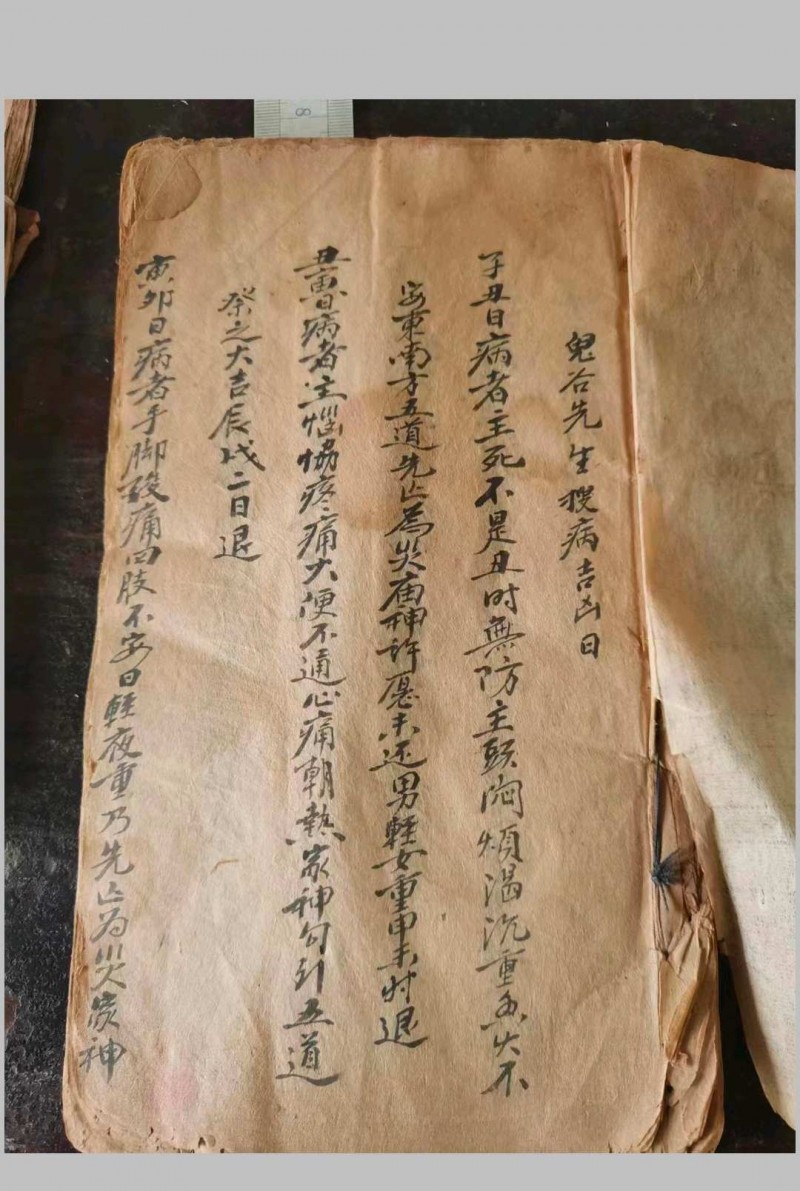 鬼谷先生搜病吉凶日
子丑日病者主死不是丑时無防主頭悶煩渴沉重火不
安東南方五道先亡為災庙神許愿未还男輕女重申未时退
丑寅日病者主惱恊疼痛大便不通心痛朝热家神勾引五道
祭之大吉辰戌二日退
寅卯日病者手脚酸痛四肢不安日輕夜重乃先亡为災家神
8